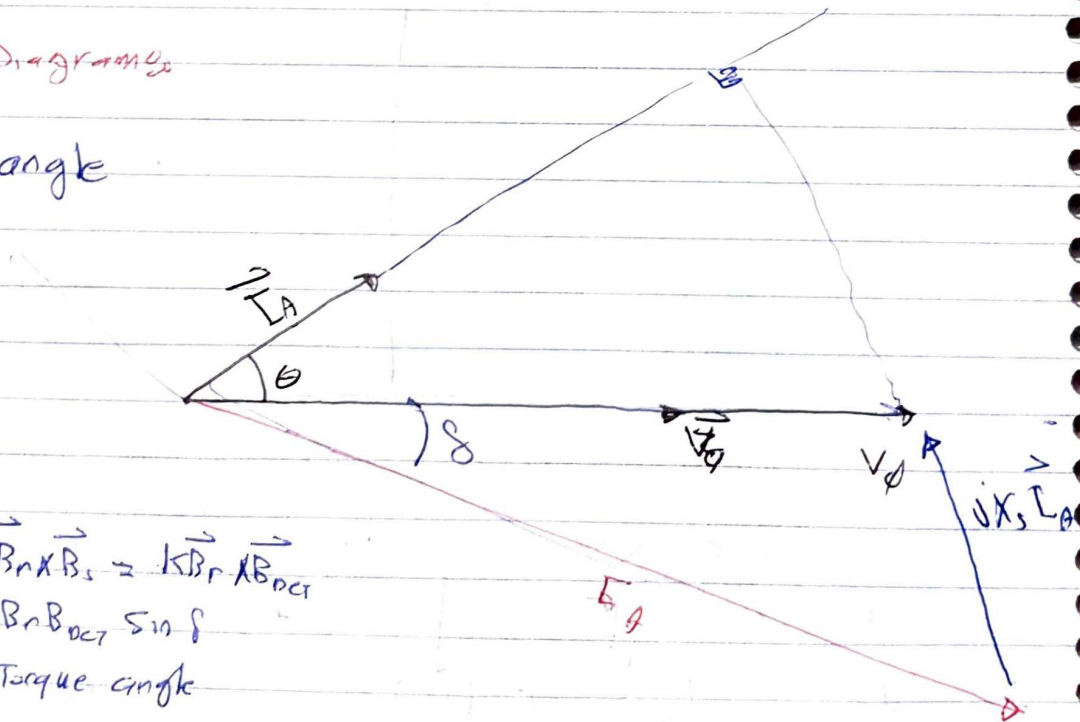 Diagrams
angle
I_A
θ
δ
V_φ
V_φ
jX_s I_A
E_A
B_r × B_s = K B_r × B_net
B_r B_net sin δ
Torque angle